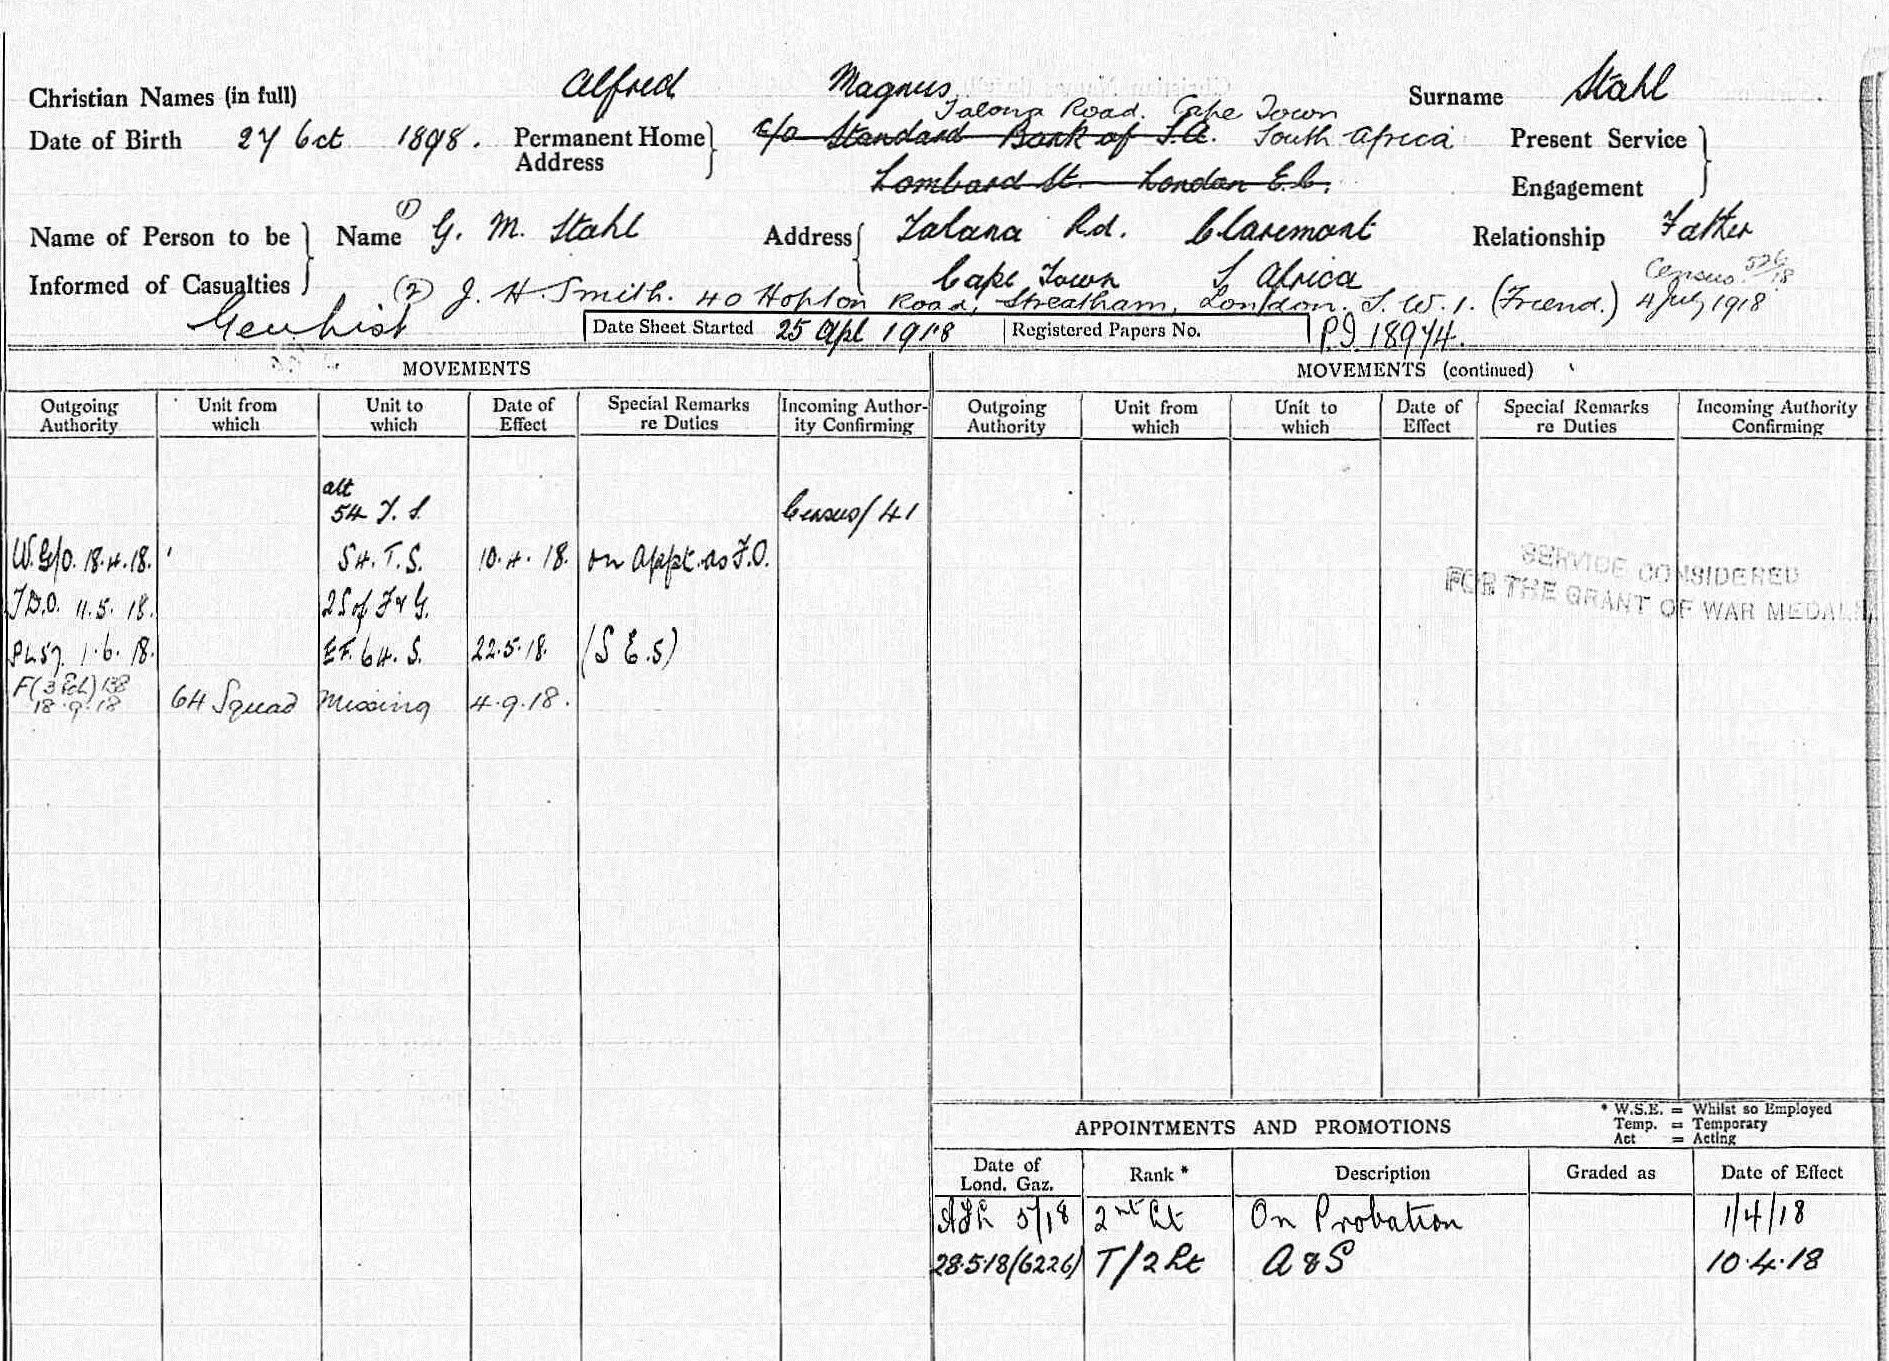 Christian Names (in full) Alfred Magnus Surname Stahl
Talana Road. Cape Town
Date of Birth 27 Oct 1898. Permanent Home Address c/o Standard Bank of S.A. South Africa Present Service
Lombard St. London E.C. Engagement
Name of Person to be Informed of Casualties (1) Name G. M. Stahl Address Talana Rd. Claremont Relationship Father
Cape Town S Africa Census 526/18
(2) J. H. Smith. 40 Hopton Road, Streatham, London. S. W. 1. (Friend.) 4 July 1918
Date Sheet Started 25 Apl 1918 Registered Papers No. P.I. 18974.
MOVEMENTS
Outgoing Authority Unit from which Unit to which Date of Effect Special Remarks re Duties Incoming Authority Confirming
att
54 T. S. Census/41
W.G/O. 18.4.18. 54. T. S. 10.4.18. on appt. as F.O.
T.D.O. 11.5.18. 2 S of F & G.
PL57. 1.6.18. E.F. 64. S. 22.5.18. (S E.5)
18.9.18 64 Squad Missing 4.9.18.
MOVEMENTS (continued)
Outgoing Authority Unit from which Unit to which Date of Effect Special Remarks re Duties Incoming Authority Confirming
SERVICE CONSIDERED
FOR THE GRANT OF WAR MEDALS
APPOINTMENTS AND PROMOTIONS
* W.S.E. = Whilst so Employed
Temp. = Temporary
Act = Acting
Date of Lond. Gaz. Rank * Description Graded as Date of Effect
5/18 2nd Lt On Probation 1/4/18
28.5.18 (6226) T/2 Lt A & S 10.4.18